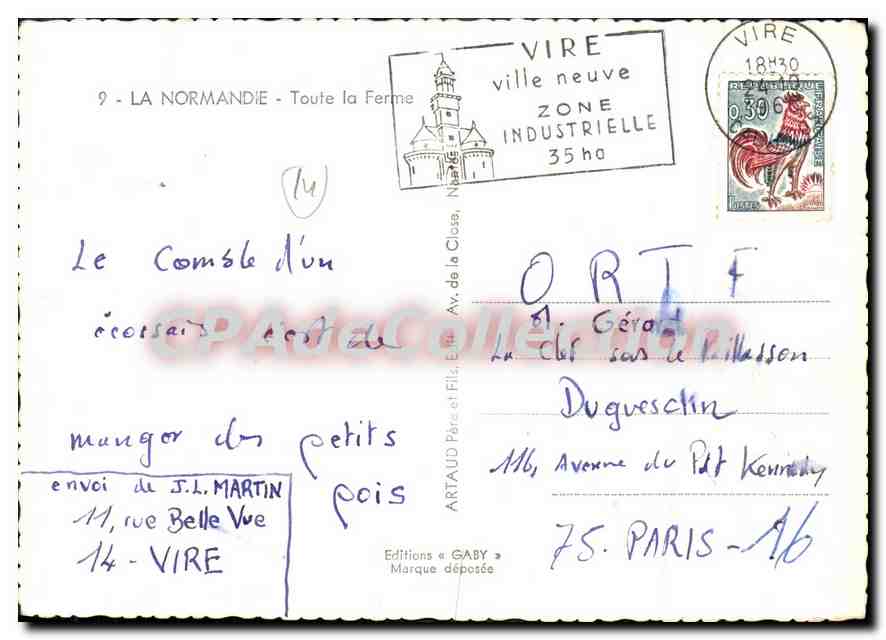 9 - LA NORMANDIE - Toute la Ferme
VIRE
ville neuve
ZONE
INDUSTRIELLE
35 ha
VIRE
18H30
24-10
REPUBLIQUE FRANÇAISE
0,30
POSTES
14
Le Comble d'un
écossais c'est de
manger des petits
pois
envoi de J.L. MARTIN
11, rue Belle Vue
14 - VIRE
ARTAUD Père et Fils, Edit. Av. de la Close, Nantes
Editions « GABY »
Marque déposée
ORTF
M. Gérard
La Clef sous le Paillasson
Duguesclin
116, Avenue du Pdt Kennedy
75. PARIS - 16
CPAdeCollection